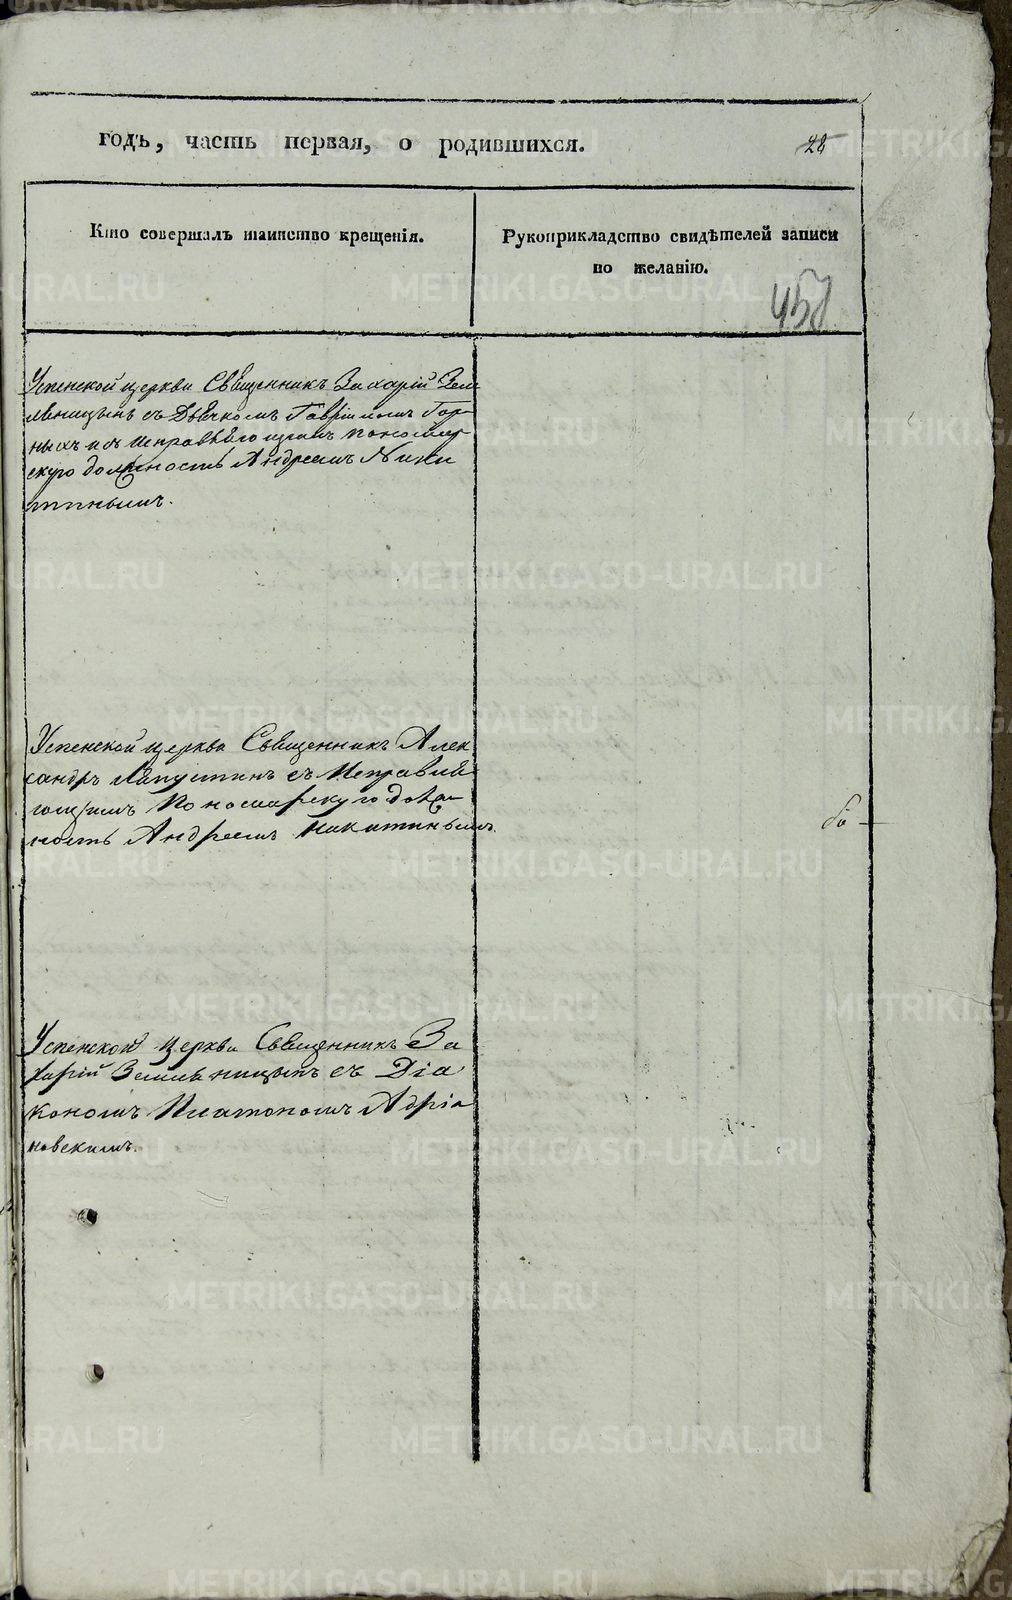 годъ, часть первая, о родившихся.
28
Кто совершалъ таинство крещенія.
Рукоприкладство свидѣтелей записи
по желанію.
457
Успенской церкви Священникъ Захарій Зем
ляницынъ съ Дьячкомъ Гавріиломъ Гор
ныхъ и съ исправляющимъ пономар
скую должность Андреемъ Ники
тинымъ.
Успенской церкви Священникъ Алек
сандръ Лапустинъ съ Исправля
ющимъ Пономарскую долж
ность Андреемъ Никитинымъ.
Успенской церкви Священникъ За
харій Земляницынъ съ Діа
кономъ Платономъ Адріа
новскимъ.
METRIKI.GASO-URAL.RU